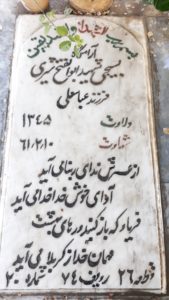 آرامگاه
بسیجی شهید ابوالفتح شیری
فرزند عباسعلی
ولادت ۱۳۴۵
شهادت ۶۱/۲/۱۰
از عرش ندای ربنا می آید
آوای خوش خدا خدا می آید
فریاد که باز کنید درهای بهشت
مهمان خدا ز کربلا می آید
قطعه ۲۶ ردیف ۷۴ شماره ۲۰